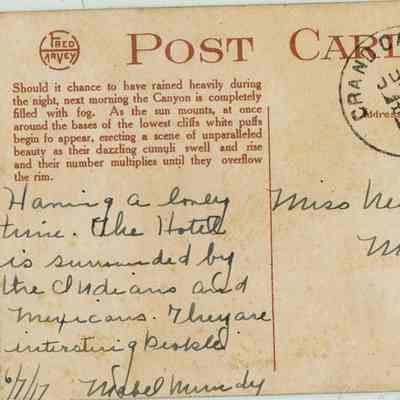 FRED HARVEY
POST CARD
Should it chance to have rained heavily during
the night, next morning the Canyon is completely
filled with fog. As the sun mounts, at once
around the bases of the lowest cliffs white puffs
begin fo appear, erecting a scene of unparalleled
beauty as their dazzling cumuli swell and rise
and their number multiplies until they overflow
the rim.
GRAND CA
JU
Address
Having a lovely
time. The Hotel
is surrounded by
the Indians and
Mexicans. They are
intersting people
6/7/17 Mabel Mundy
Miss